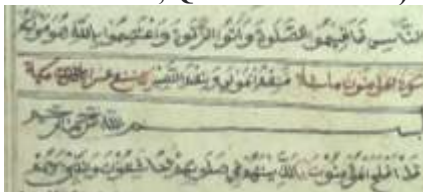 الناس فاقيموا الصلوة واتوا الزكوة واعتصموا بالله هو موليكم
سورة المؤمنون مائة
بسم الله الرحمن الرحيم
قد افلح المؤمنون الذين هم في صلوتهم خاشعون والذين هم